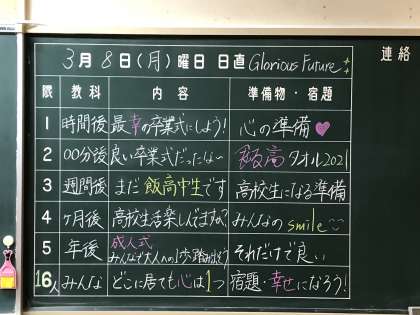 3月8日(月)曜日 日直 Glorious Future
連絡
限 教科 内容 準備物・宿題
1 時間後 最幸の卒業式にしよう! 心の準備
2 00分後 良い卒業式だったな〜 飯高タオル2021
3 週間後 まだ飯高中生です 高校生になる準備
4 ヶ月後 高校生活楽しんでますか? みんなのsmile
5 年後 成人式 それだけで良い
みんなで大人への1歩踏み出そう
16人 みんな どこに居ても心は1つ 宿題・幸せになろう!